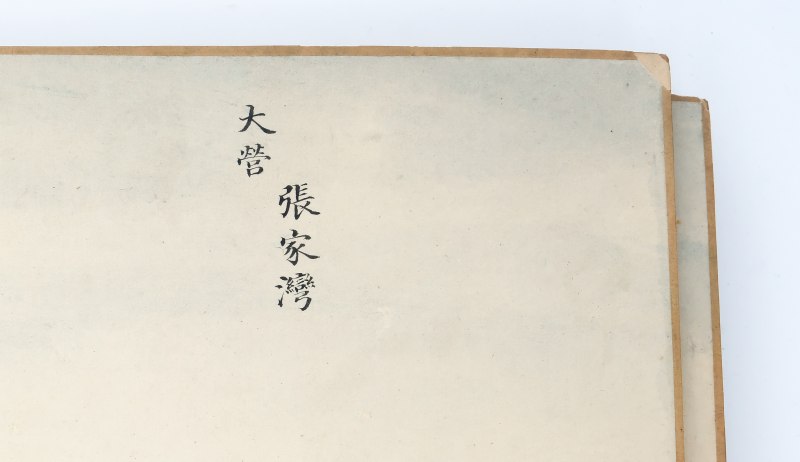 張家灣
大營